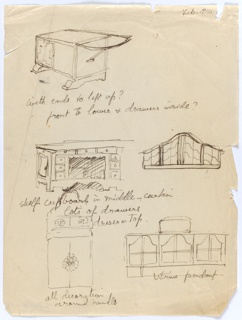 with ends to lift up?
front to lower & drawers inside?
shelf cupboards in middle - curtain
lots of drawers
dresser top.
all decoration
around handle